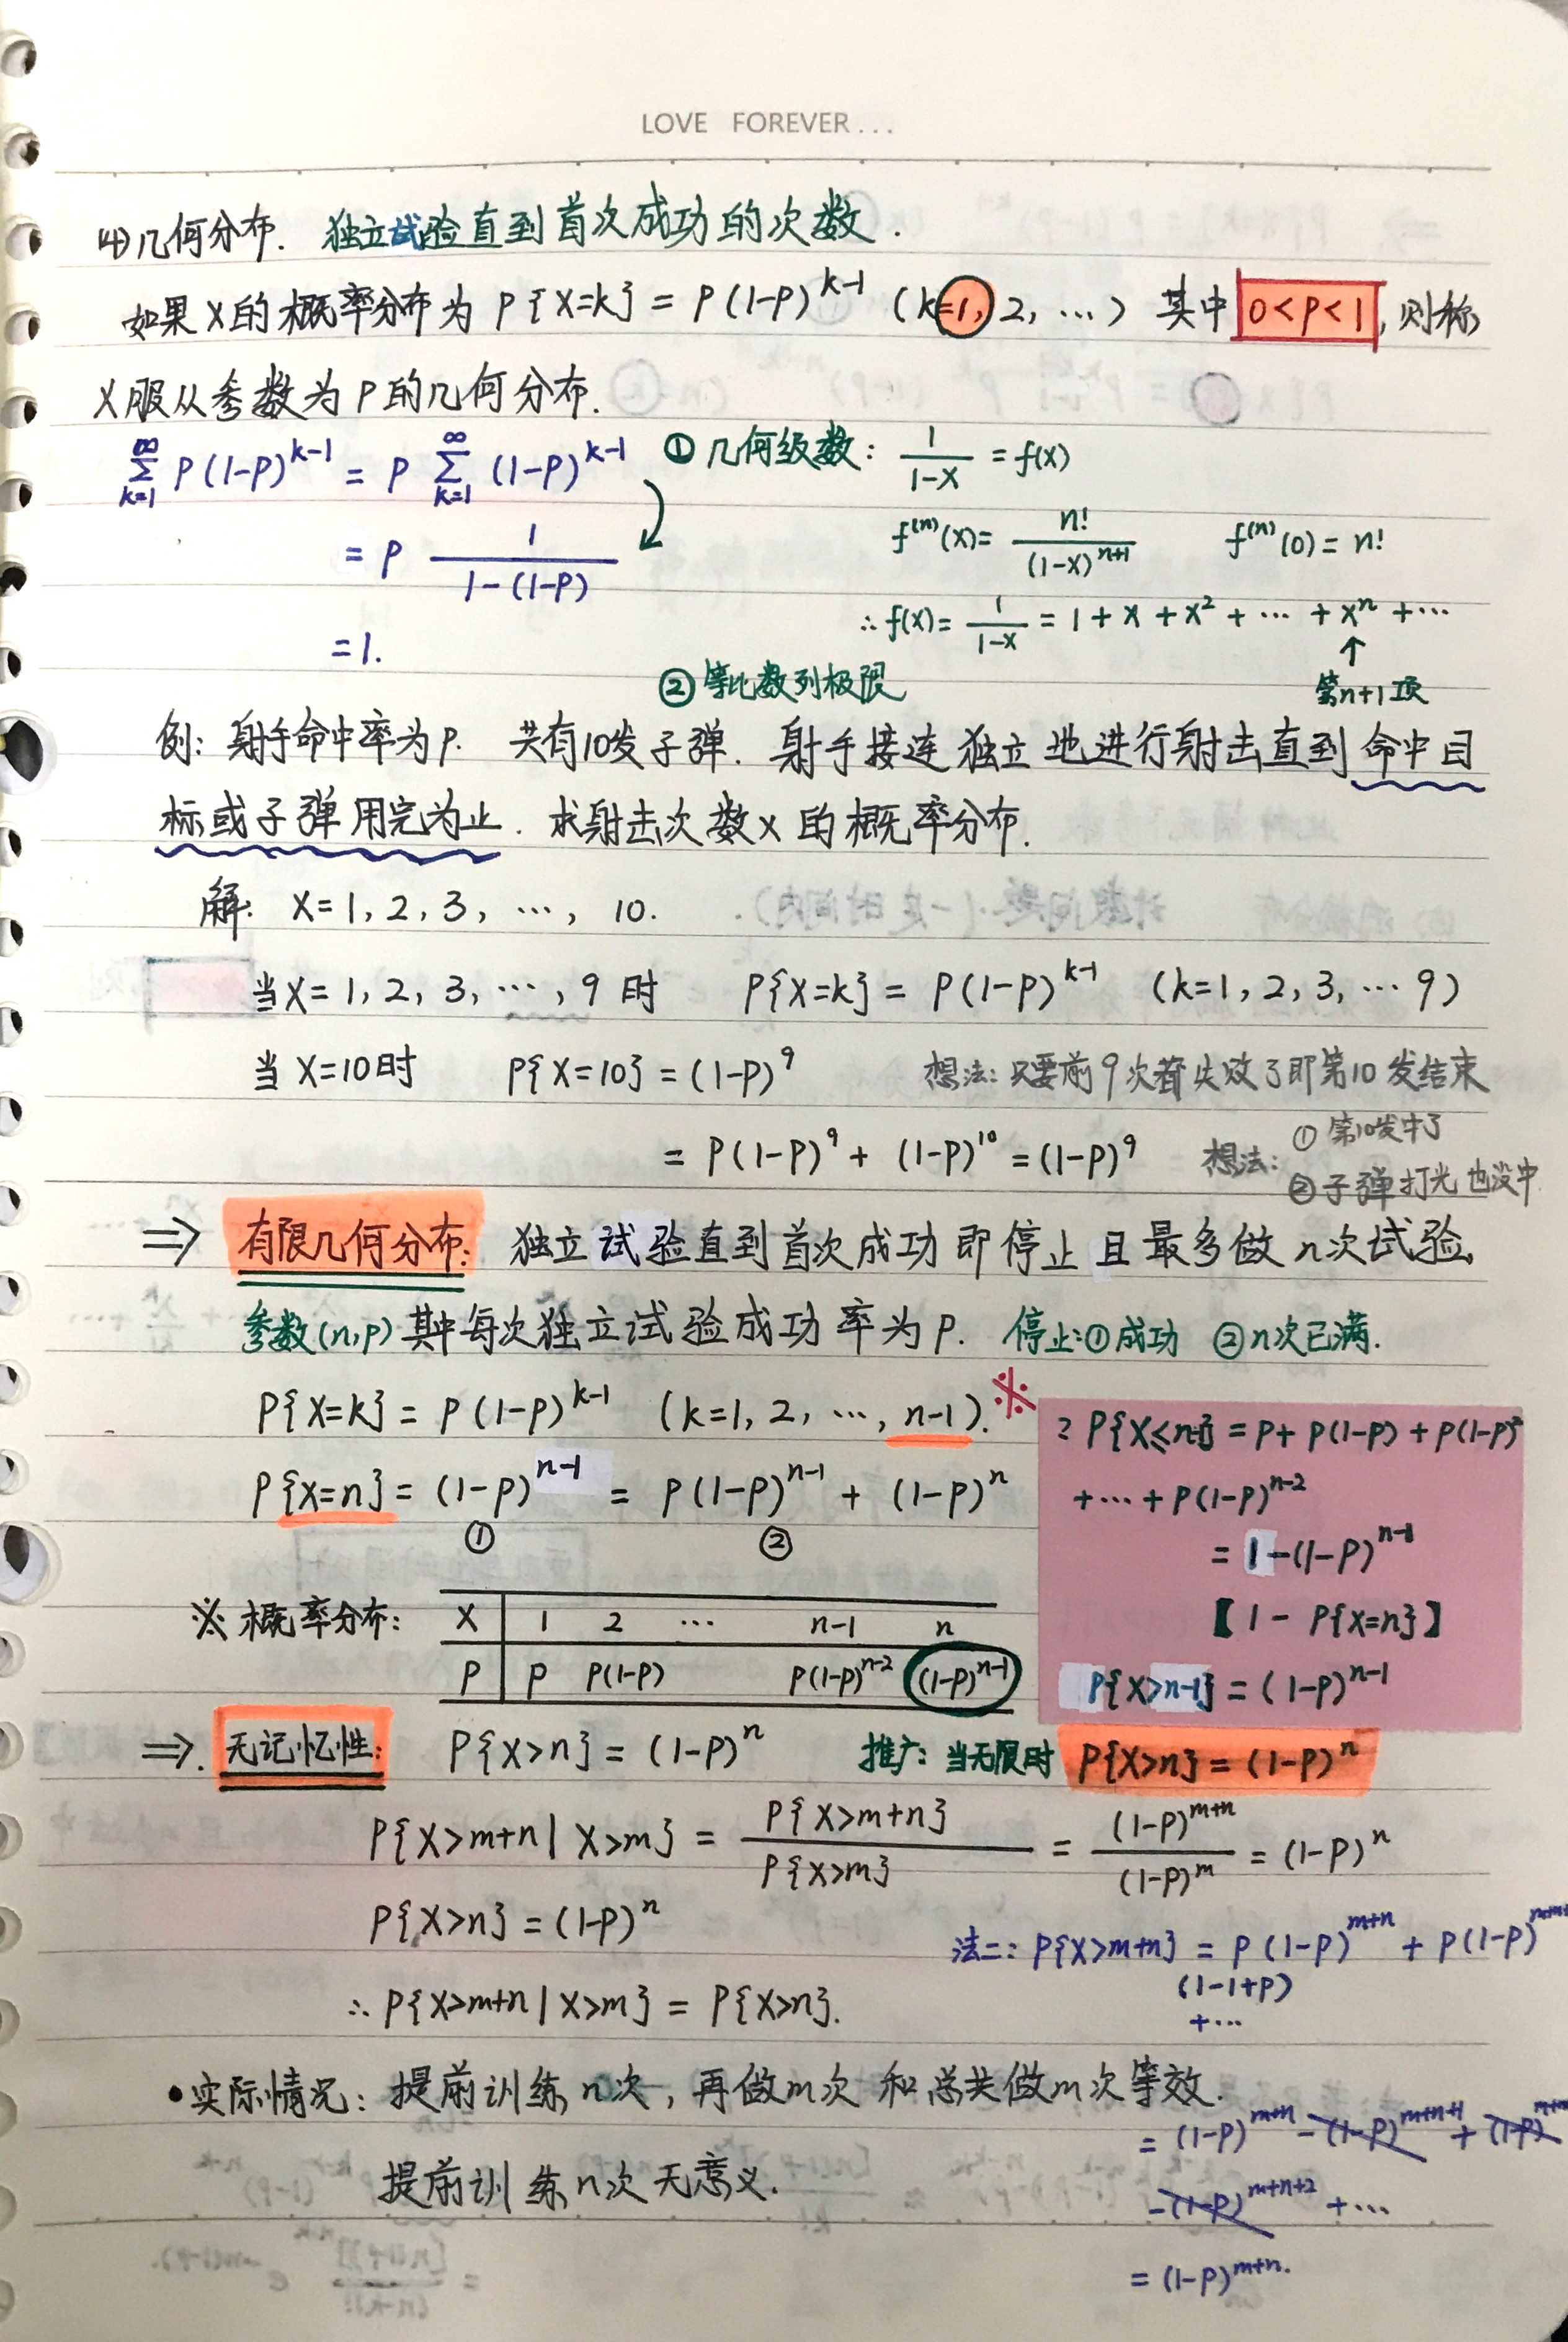 LOVE FOREVER...
(4)几何分布. 独立试验直到首次成功的次数.
如果X的概率分布为 P{X=k} = P(1-P)^{k-1} (k=1, 2, …) 其中 0<P<1, 则称
X服从参数为P的几何分布.
∑_{k=1}^{∞} P(1-P)^{k-1} = P ∑_{k=1}^{∞} (1-P)^{k-1}
= P \frac{1}{1-(1-P)}
=1.
①几何级数: \frac{1}{1-X} = f(X)
f^{(n)}(X) = \frac{n!}{(1-X)^{n+1}} f^{(n)}(0) = n!
∴ f(X) = \frac{1}{1-X} = 1 + X + X^2 + … + X^n + …
↑
第n+1项
②等比数列极限
例: 射手命中率为P. 共有10发子弹. 射手接连独立地进行射击直到命中目
标或子弹用完为止. 求射击次数X的概率分布.
解: X=1, 2, 3, …, 10.
当X=1, 2, 3, …, 9时 P{X=k} = P(1-P)^{k-1} (k=1, 2, 3, … 9)
当X=10时 P{X=10} = (1-P)^9 想法: 只要前9次都失败了即第10发结束
= P(1-P)^9 + (1-P)^{10} = (1-P)^9 想法: ①第10发中了
②子弹打光也没中
⇒ 有限几何分布: 独立试验直到首次成功即停止且最多做n次试验,
参数(n,p) 其中每次独立试验成功率为P. 停止:①成功 ②n次已满.
P{X=k} = P(1-P)^{k-1} (k=1, 2, …, n-1). ※
P{X=n} = (1-P)^{n-1} = P(1-P)^{n-1} + (1-P)^n
① ②
P{X≤n-1} = P + P(1-P) + P(1-P)^2
+ … + P(1-P)^{n-2}
= 1-(1-P)^{n-1}
【1 - P{X=n}】
P{X>n-1} = (1-P)^{n-1}
※ 概率分布: X 1 2 … n-1 n
P P P(1-P) P(1-P)^{n-2} (1-P)^{n-1}
⇒. 无记忆性: P{X>n} = (1-P)^n 推广: 当无限时 P{X>n} = (1-P)^n
P{X>m+n | X>m} = \frac{P{X>m+n}}{P{X>m}} = \frac{(1-P)^{m+n}}{(1-P)^m} = (1-P)^n
P{X>n} = (1-P)^n
∴ P{X>m+n | X>m} = P{X>n}.
法二: P{X>m+n} = P(1-P)^{m+n} + P(1-P)
(1-1+P)
+…
•实际情况: 提前训练n次, 再做m次和总共做m次等效.
提前训练n次无意义.
= (1-P)^{m+n} - (1-P)^{m+n+1} + (1-P)
- (1-P)^{m+n+2} + …
= (1-P)^{m+n}.